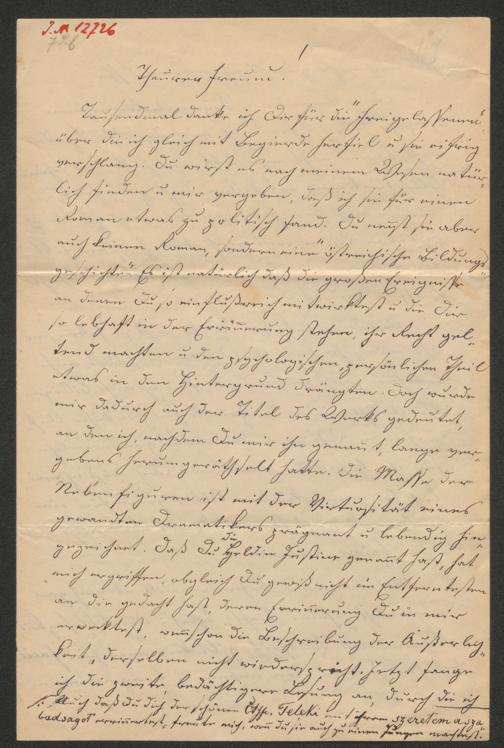 I.N 12726
726
1
Theurer Freund!
Tausendmal danke ich Dir für die „Freigelassenen“
über die ich gleich mit Begierde herfiel u sie eifrig
verschlang. Du wirst es nach meinem Wesen natür-
lich finden u mir vergeben, daß ich sie für einen
Roman etwas zu politisch fand. Du nennst sie aber
auch keinen Roman, sondern eine „östreichische Bildungs-
geschichte“ Es ist natürlich daß die großen Ereignisse
an denen Du so einflußreich mitwirktest u die Dir
so lebhaft in der Erinnerung stehen, ihr Recht gel-
tend machten u den psychologischen, persönlichen Theil
etwas in den Hintergrund drängten. Doch wurde
mir dadurch auch der Titel des Werks gedeutet,
an dem ich, nachdem Du mir ihn genannt, lange ver-
gebens herumgeräthselt hatte. Die Masse der
Nebenfiguren ist mit der Virtuosität eines
gewandten Dramatikers prägnant u lebendig hin-
gezeichnet. Daß Du die Heldin Justine genannt hast, hat
mich ergriffen, obgleich Du gewiß nicht im Entferntesten
an die gedacht hast, deren Erinnerung Du in mir
erwecktest, wenn schon die Beschreibung der Äußerlich-
keit, derselben nicht widerspricht. Jetzt fange
ich die zweite, bedächtigere Lesung an, durch die ich
Auch daß Du Dich der schönen Teleki mit ihrem szeretem a sza
badságot erinnertest, freute mich, wenn Du sie auch zu einer machtest.